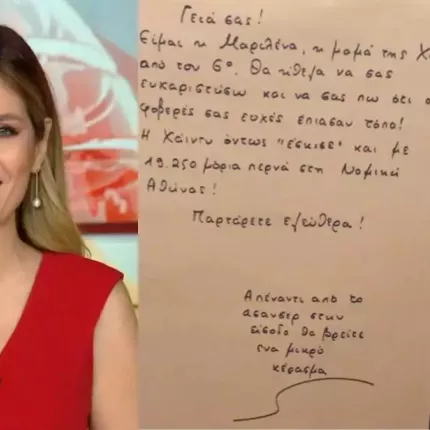 Γειά σας!
Είμαι η Μαριλένα, η μαμά της
από τον 6º. Θα ήθελα να σας
ευχαριστήσω και να σας πω ότι ο
φοβερές σας ευχές έπιασαν τόπο!
Η Χάιντυ όντως "έσκισε" και με
19.250 μόρια περνά στη Νομική
Αθήνας!
Παρτάρετε ελεύθερα!
Απέναντι από το
ασανσέρ στην
είσοδο θα βρείτε
ένα μικρό
κέρασμα